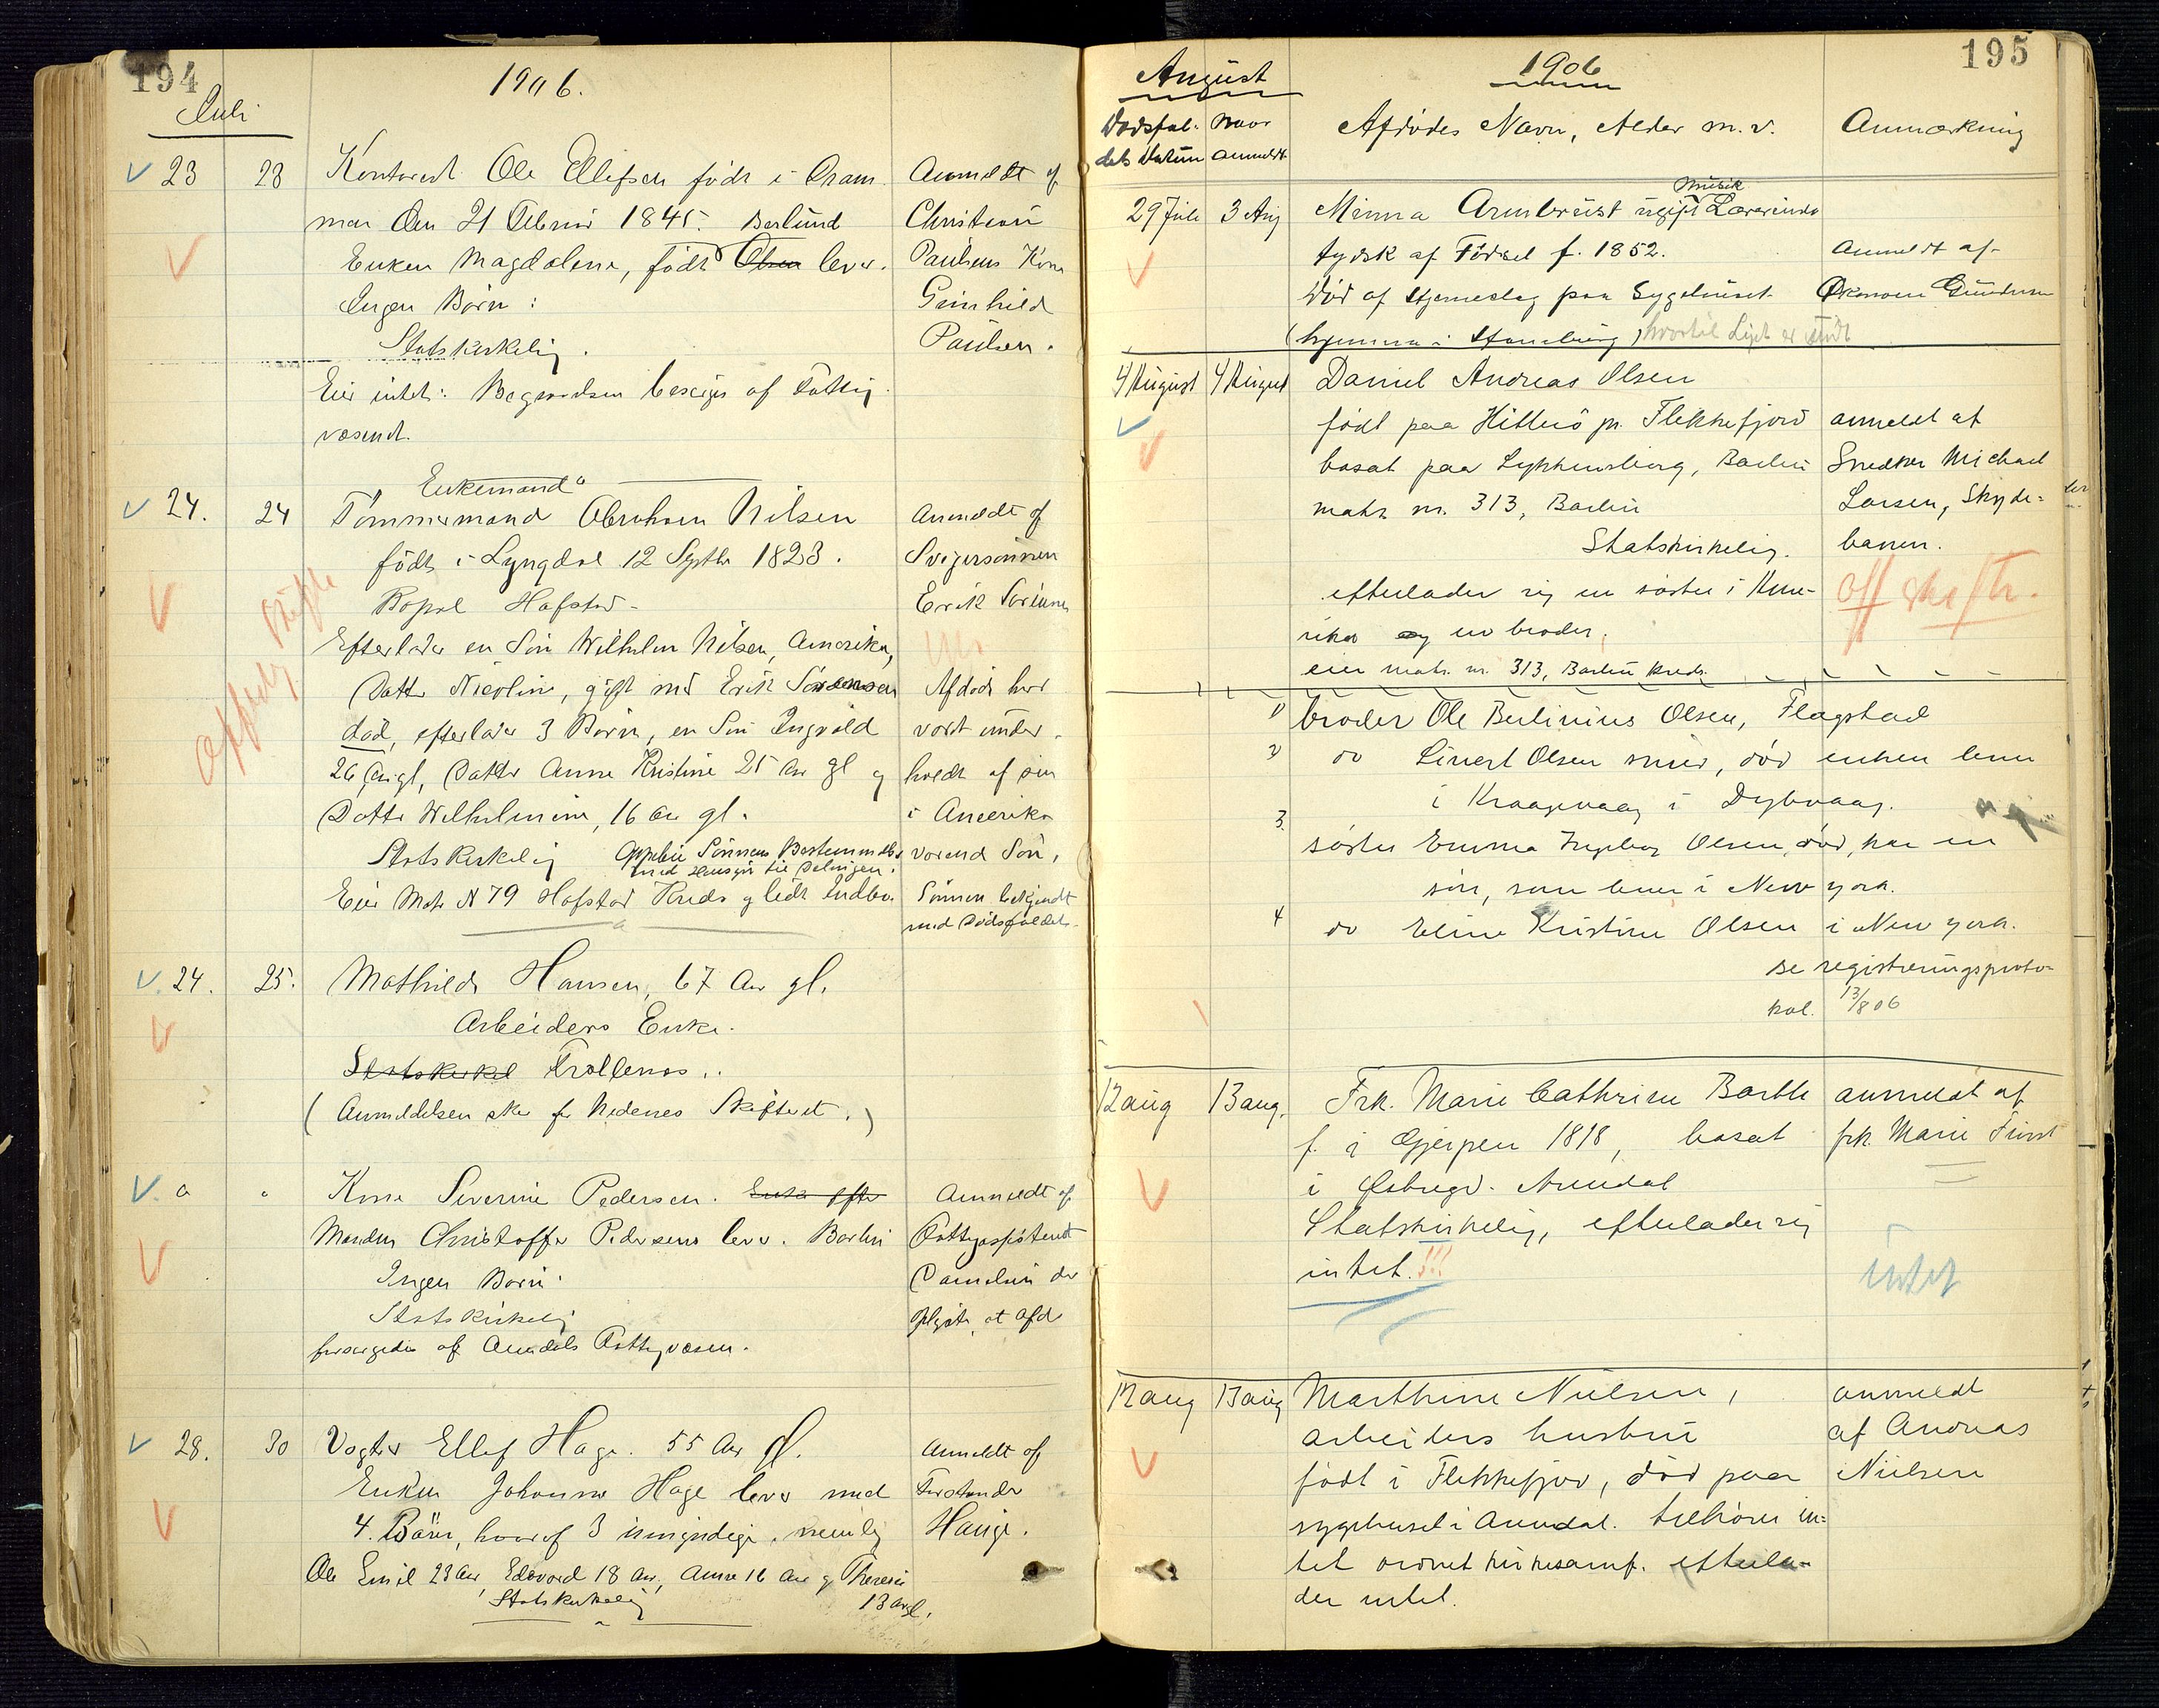 194
Juli
1906.
23 23 Kontorist Ole Ellefsen født i Dram-
men den 21 Februar 1845. Barbu
Enken Magdalene, født Olsen lever.
Ingen Børn:
Statskirkelig.
Eier intet: Begravelsen besørges af Fattig-
væsenet.
Anmeldt af
Christian
Paulsens Kone
Gunhild
Paulsen.
Enkemand
24. 24 Tømmermand Abraham Nilsen
født i Lyngdal 12 Septbr 1823.
Bopæl Hafstad
Efterlader en Søn Wilhelm Nilsen, Amerika,
Datter Nicoline, gift med Erik Sørensen
død, efterlader 3 Børn, en Søn Ingvald
26 aar gl, Datter Anne Kristine 25 aar gl og
Datter Wilhelmine, 16 aar gl.
Statskirkelig Opphør Sønnens Bestemmelse
med Hensyn til Delingen.
Eier Matr N 79 Hafstad Kreds og lidt Indbo.
Anmeldt af
Svigersønnen
Erik Sørensen
Afdøde har
været under-
holdt af sin
i Amerika
værende Søn,
Sønnen bekjendt
med Dødsfaldet.
24. 25. Mathilde Hansen, 67 Aar gl.
Arbeiders Enke.
Statskirkel Trollenes..
(Anmeldelsen sker for Nedenes Skifteret.)
" " Kone Severine Pedersen. Enke efter
Manden Christoffer Pedersens lever. Barbu
Ingen Børn.
Statskirkelig
forsørgedes af Arendals Fattigvæsen.
Anmeldt af
Fattigassistent
Danielsen der
oplyste at afd
28. 30 Vogter Ellef Hage. 55 Aar gl.
Enken Johanne Hage lever med
4. Børn, hvoraf 3 umyndige, nemlig
Ole Emil 23 aar, Edvard 18 aar, Anne 16 aar og Therese
13 aar gl.
Statskirkelig
Anmeldt af
Forstander
Hauge.
195
August
1906
Dødsfal-
dets Datum
Naar
anmeldt
Afdødes Navn, Alder m.v.
Anmærkning
29 Juli 3 Aug Minna Armbrüst ugift Musik Lærerinde
tydsk af Fødsel f. 1852.
Død af Hjerneslag paa Sygehuset
(hjemme i Hamburg) hvortil Liget er sendt
Anmeldt af
Økonom Gundersen
4 August 4 August Daniel Andreas Olsen
født paa Hitterø pr. Flekkefjord
bosat paa Lykkensborg, Barbu
matr. nr. 313, Barbu
Statskirkelig.
efterlader sig en søster i Ame-
rika og en broder.
eier matr. nr. 313, Barbu kreds.
anmeldt af
Snedker Michael
Larsen, Skyde-
banen.
off skiftr.
1) broder Ole Berlinius Olsen, Flagstad
2) do Sivert Olsen smed, død enken lever
i Kraagevaag i Dybvaag.
3. søster Emma Ingeborg Olsen, død, har en
søn, som lever i New york.
4 do Eline Kristine Olsen i New york.
se registreringsproto-
kol. 13/8 06
12 aug 13 aug. Frk. Marie Cathrine Barth
f. i Gjerpen 1818, bosat
i Østregd. Arendal
Statskirkelig, efterlader sig
intet. !!!
anmeldt af
frk. Marie Fürst
intet
12 aug 13 aug Marthine Nielsen,
arbeiders hustru
født i Flekkefjord, død paa
sygehuset i Arendal. tilhører in-
tet ordnet kirkesamf. efterla-
der intet.
anmeldt
af Andreas
Nielsen